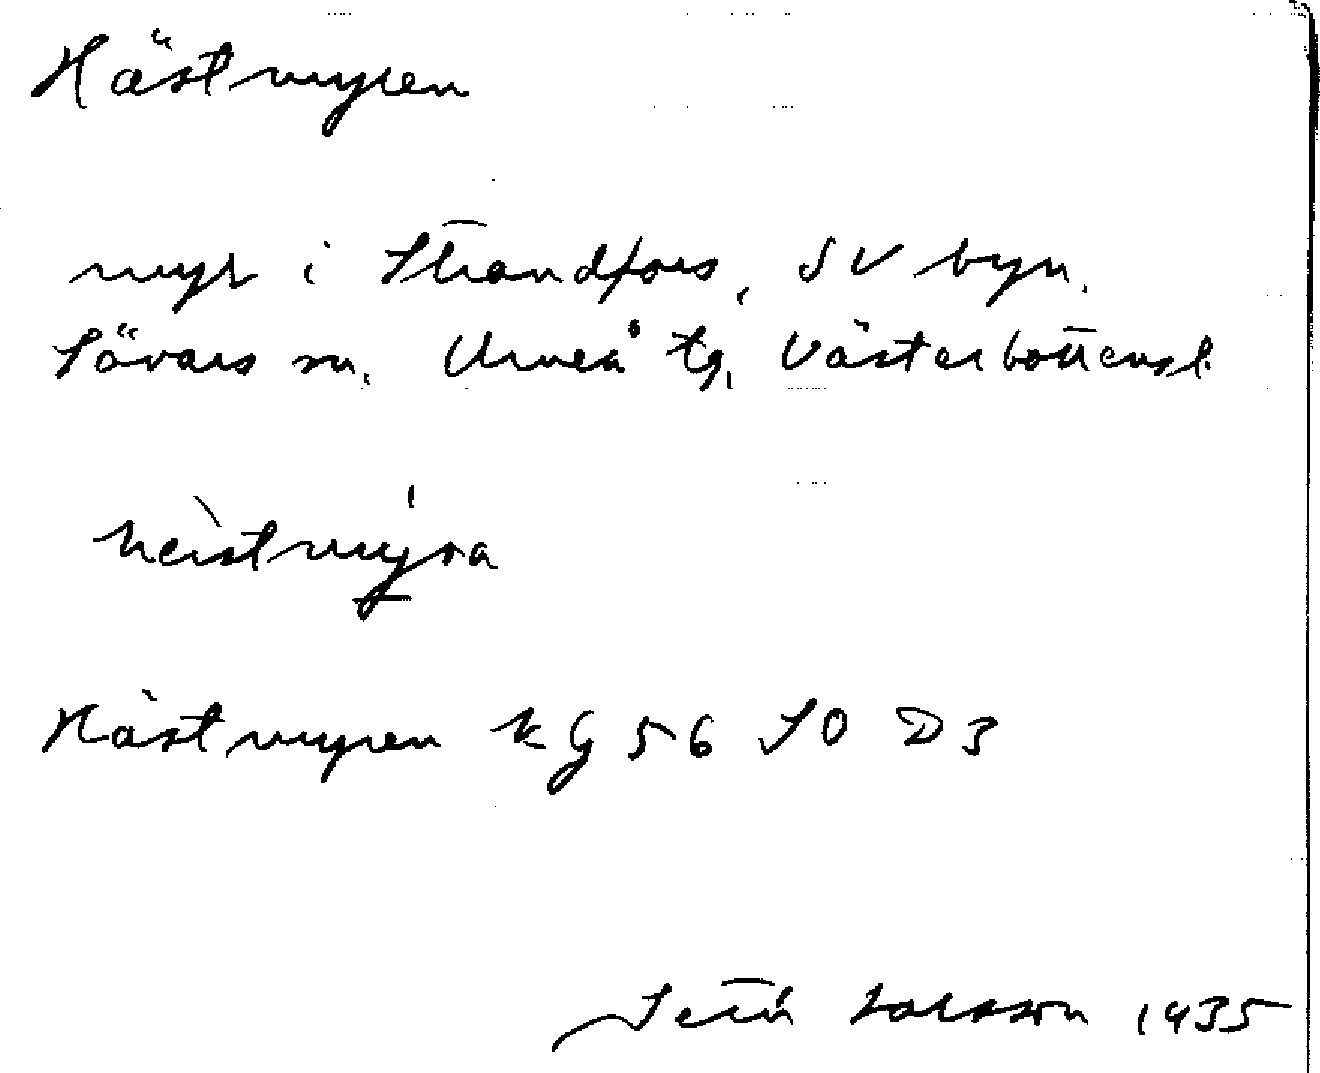 Hästmyren
myr i Strandfors, SV byn.
Sävars sn. Umeå tg. Västerbottensl.
hèistmyra
Hästmyren kg 56 SO D3
Seth Larsson 1935